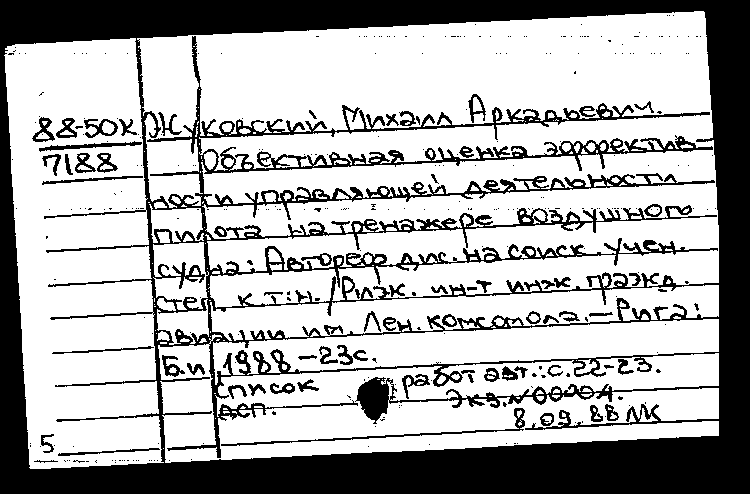 88-50К Жуковский, Михаил Аркадьевич.
7188 Объективная оценка эффектив=
ности управляющей деятельности
пилота на тренажере воздушного
судна: Автореф. дис. на соиск. учен.
степ. к.т.н. / Рижск. ин-т инж. гражд.
авиации им. Лен. комсомола. — Рига:
Б.и., 1988. - 23с.
Список работ авт.: с.22-23.
ДСП. Экз. №00004.
8.09.88 ЛК
5